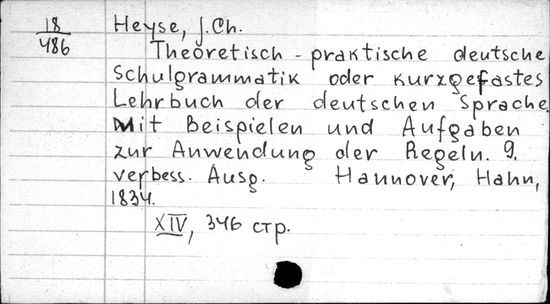 18/486 Heyse, J.Ch.
Theoretisch-praktische deutsche
Schulgrammatik oder kurzgefastes
Lehrbuch der deutschen Sprache
mit Beispielen und Aufgaben
zur Anwendung der Regeln. 9.
verbess. Ausg. Hannover, Hahn,
1834.
XIV, 346 стр.